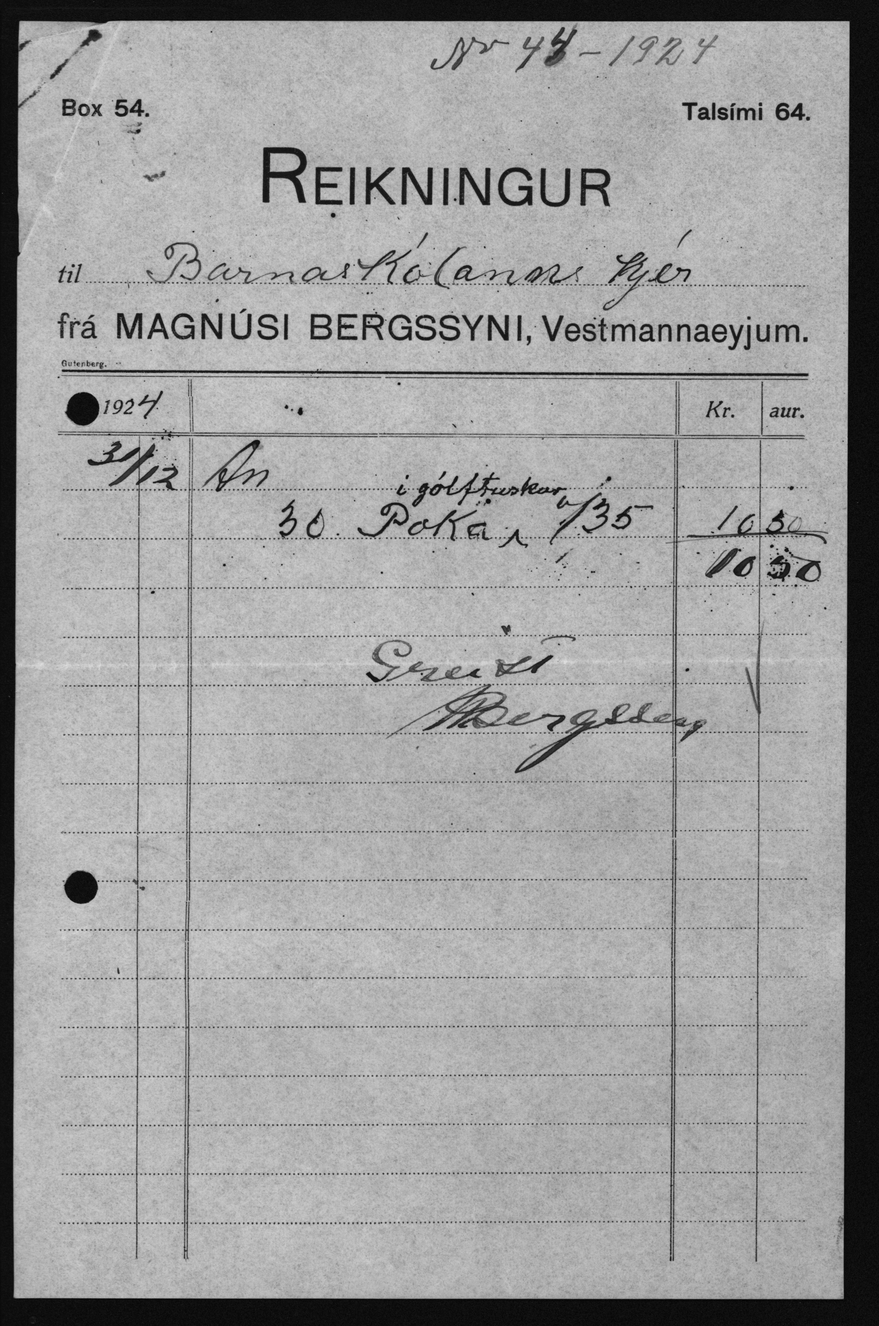 No 44 - 1924
Box 54. Talsími 64.
REIKNINGUR
til Barnaskólanns hjer
frá MAGNÚSI BERGSSYNI, Vestmannaeyjum.
Gutenberg.
1924 Kr. aur.
31/12 An
í gólftuskur
30 Poka 1/35 10 50
10 50
Greitt
MBergsson